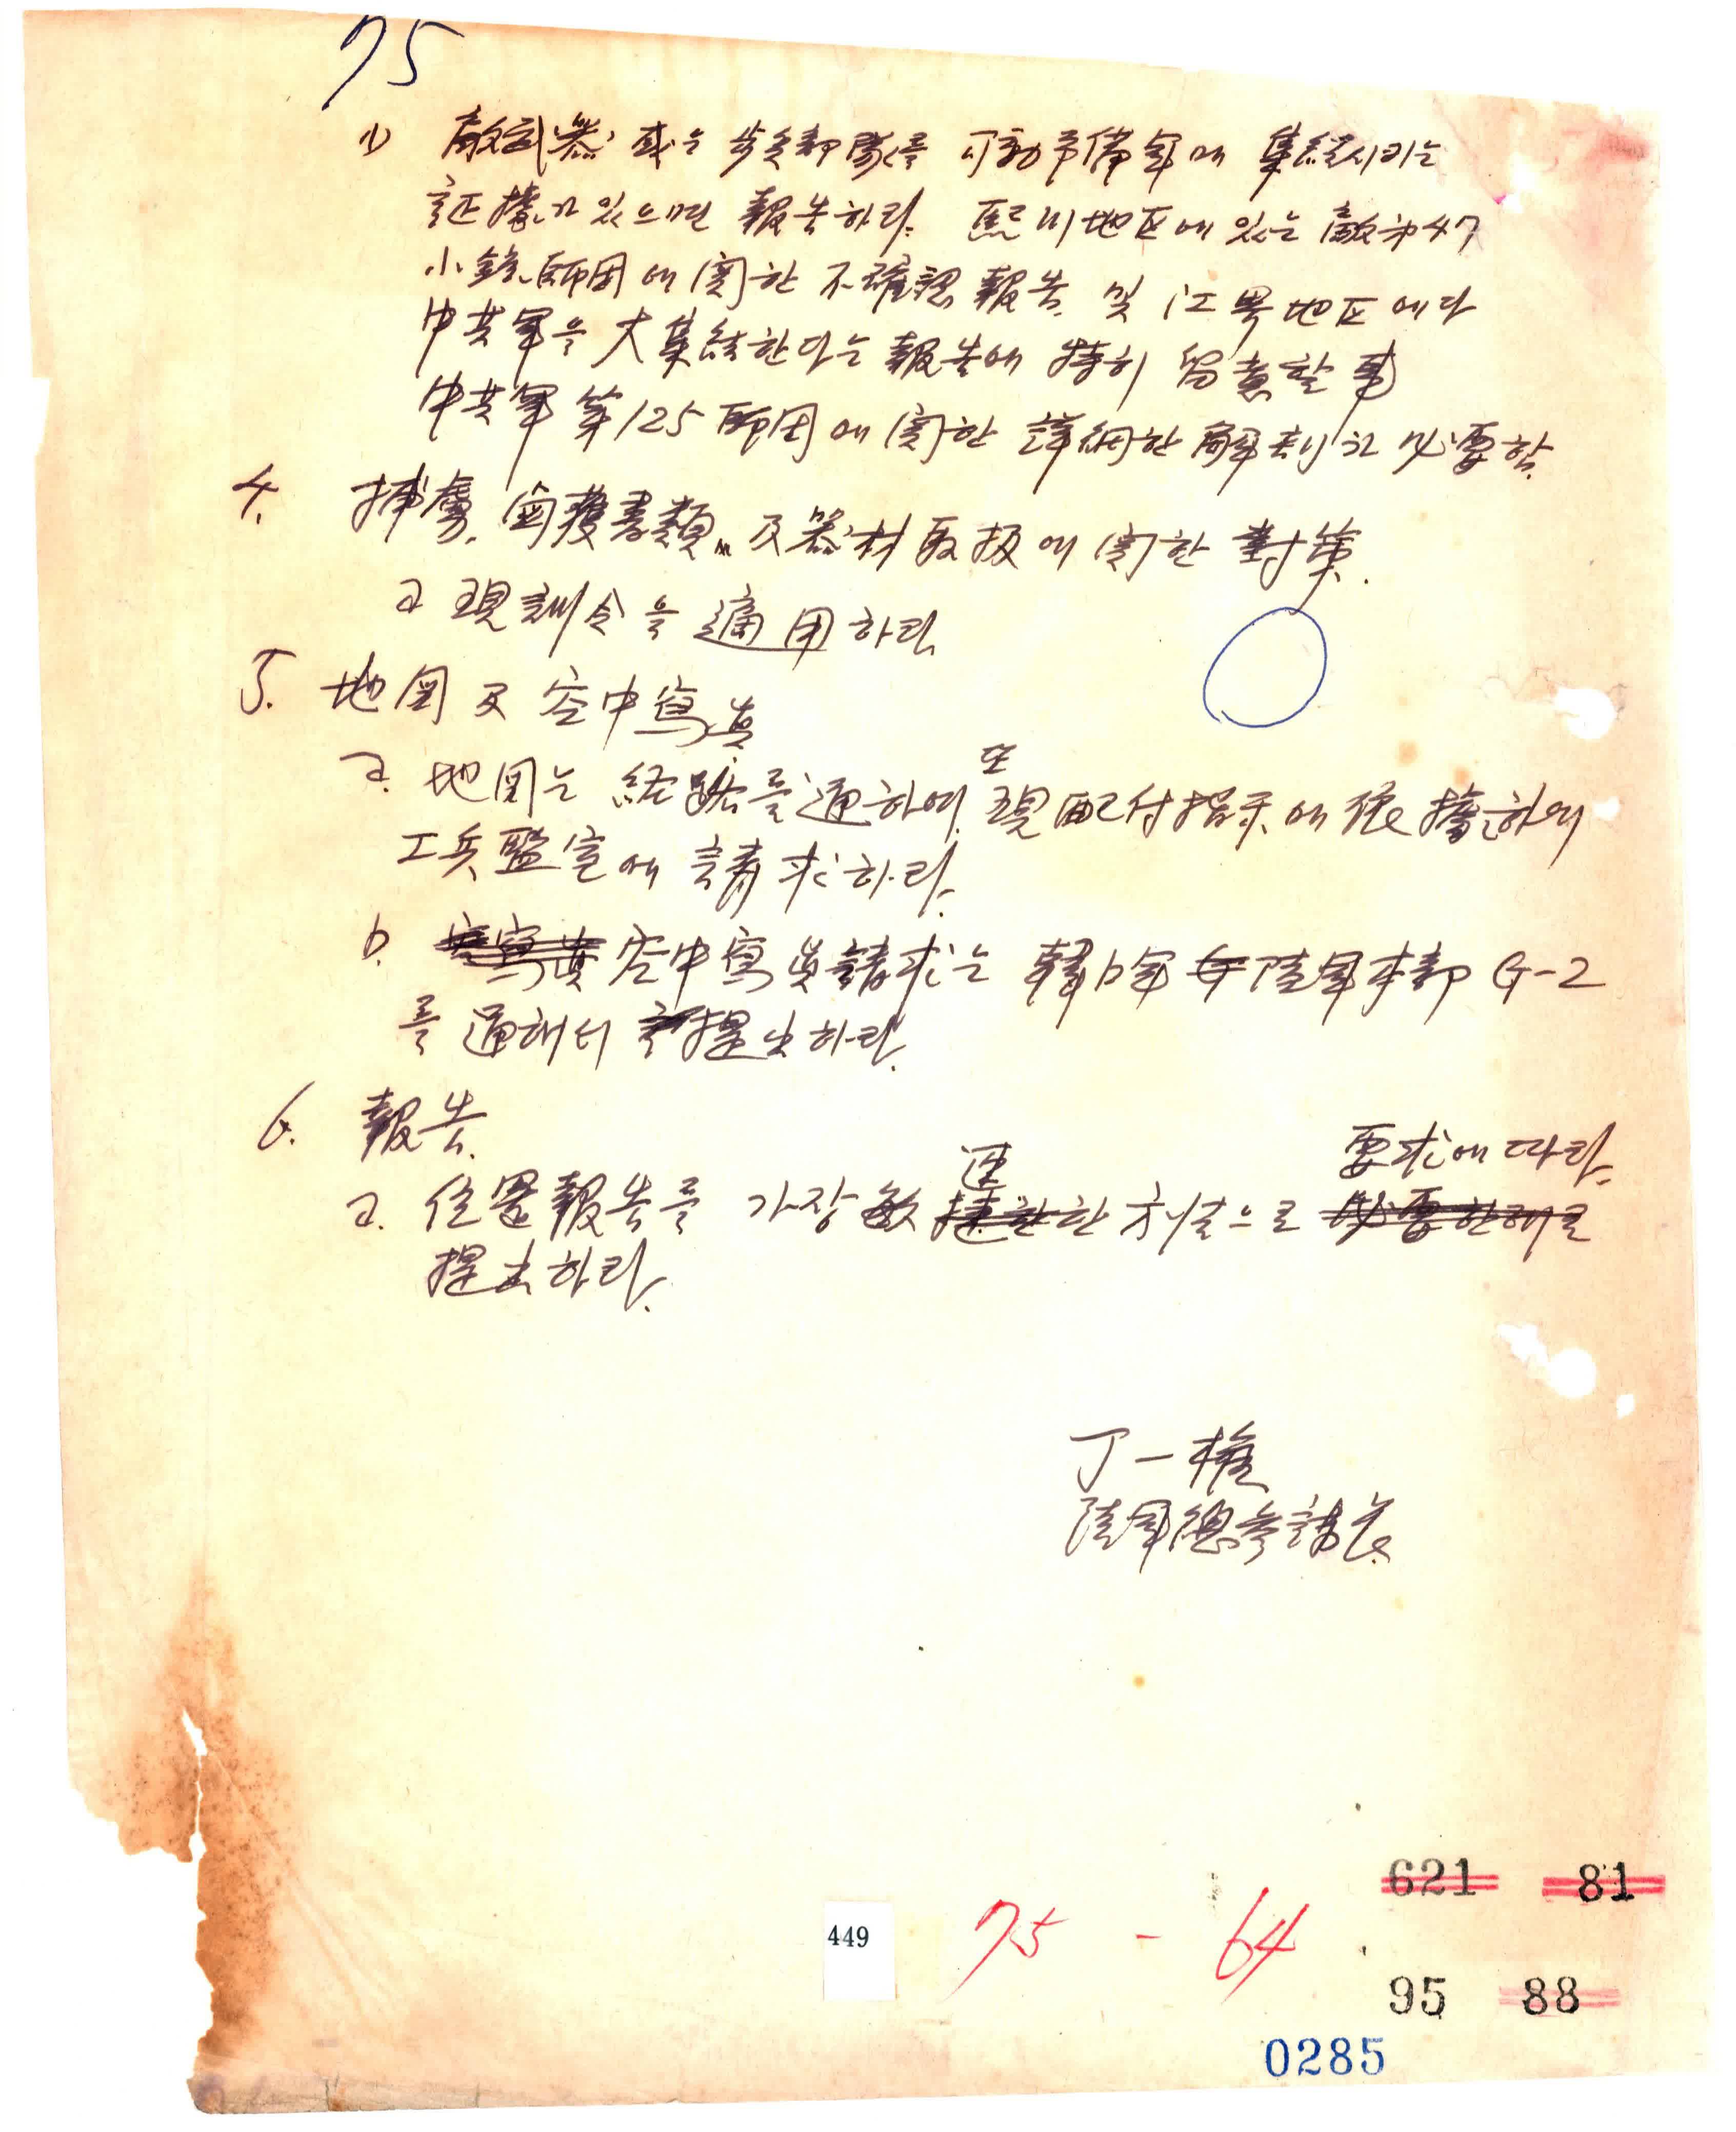 75
1) 敵武器 或는 步兵部隊를 可動予備軍에 集結시키는
証據가 있으면 報告하라. 熙川地区에 있는 敵第47
小銃師団에 関한 不確認 報告 및 江界地区에다
中共軍을 大集結한다는 報告에 特히 留意할 事
中共軍 第125師団에 関한 詳細한 解剖가 必要함.
4. 捕虜, 鹵獲書類 及 器材 取扱에 関한 對策.
a 現訓令을 適用하라
5. 地図 及 空中寫真
a. 地図는 経路를 通하여 또 現配付指示에 依據하여
工兵監室에 請求하라.
b. 空中寫真請求는 韓国軍 陸軍本部 G-2
를 通해서 提出하라.
6. 報告.
a. 位置報告를 가장 敏速한 方法으로 要求에 따라
提出하라.
丁一権
陸軍總參謀長
621 81
449 75 - 64
95 88
0285